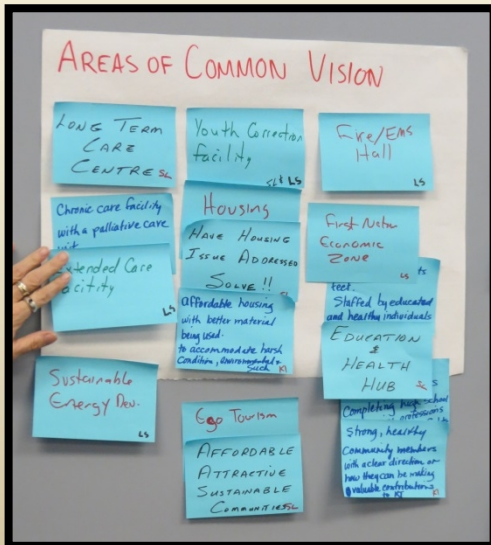 AREAS OF COMMON VISION
LONG TERM
CARE
CENTRE SL
Chronic care facility
with a palliative care
Extended Care
Facitity
LS
Sustainable
Energy Dev.
LS
Youth Correction
Facility
SL & LS
Housing
HAVE HOUSING
ISSUE ADDRESSED
SOLVE !!
affordable housing
with better material
being used.
to accommodate harsh
Condition, environmental &
such
Eco Tourism
AFFORDABLE
ATTRACTIVE
SUSTAINABLE
COMMUNITIES SL
Fire/EMS
Hall
LS
First Nation
Economic
Zone
LS
feet.
Staffed by educated
and healthy individuals
EDUCATION
&
HEALTH
HUB
Completing high school
professions
Strong, healthy
Community members
with a clear direction on
how they can be making
valuable contributions